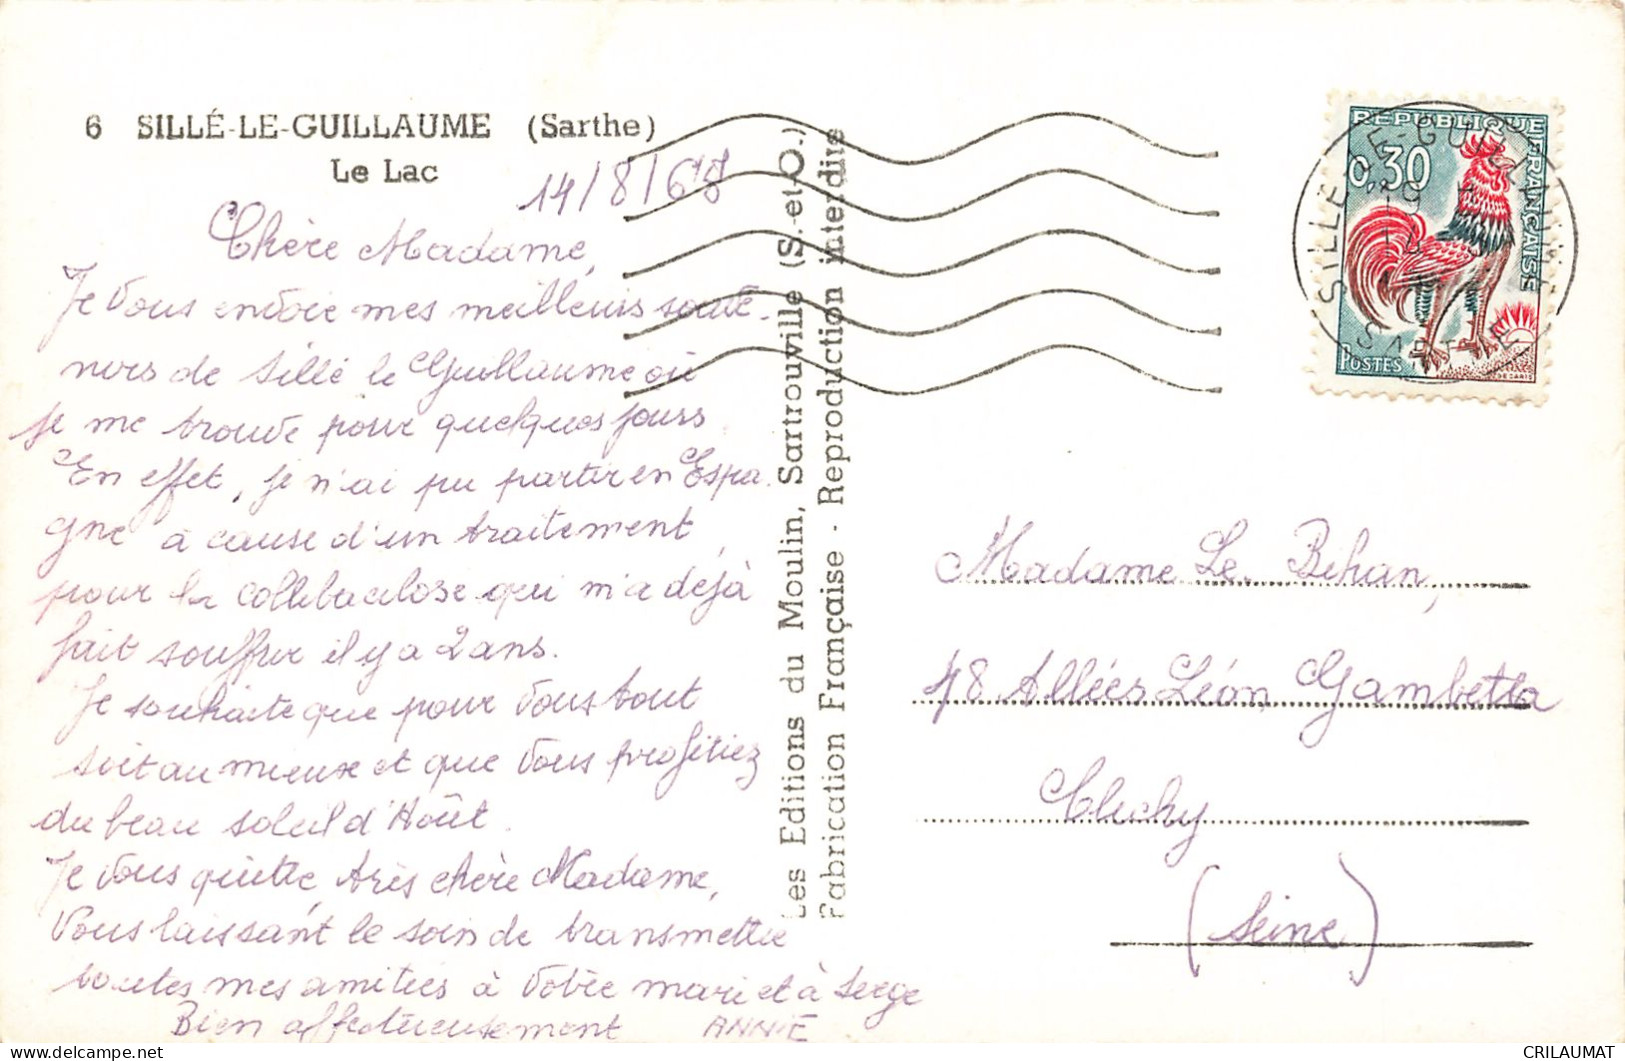 6 SILLÉ-LE-GUILLAUME (Sarthe)
Le Lac
14/8/65
Chère Madame,
Je vous envoie mes meilleurs souve-
nirs de Sillé le Guillaume où
je me trouve pour quelques jours.
En effet, je n'ai pu partir en Espa-
gne à cause d'un traitement
pour la collibacilose qui m'a déjà
fait souffrir il y a 2 ans.
Je souhaite que pour vous tout
soit au mieux et que vous profitiez
du beau soleil d'Août.
Je vous quitte, très chère Madame,
Vous laissant le soin de transmettre
toutes mes amitiés à votre mari et à Serge
Bien affectueusement ANNIE
Les Editions du Moulin, Sartrouville (S.-et-O.)
Fabrication Française - Reproduction interdite
RÉPUBLIQUE FRANÇAISE
0,30
POSTES
SILLE-LE-GUILLAUME
SARTHE
Madame Le Bihan,
48 Allées Léon Gambetta
Clichy
(Seine)
CRILAUMAT